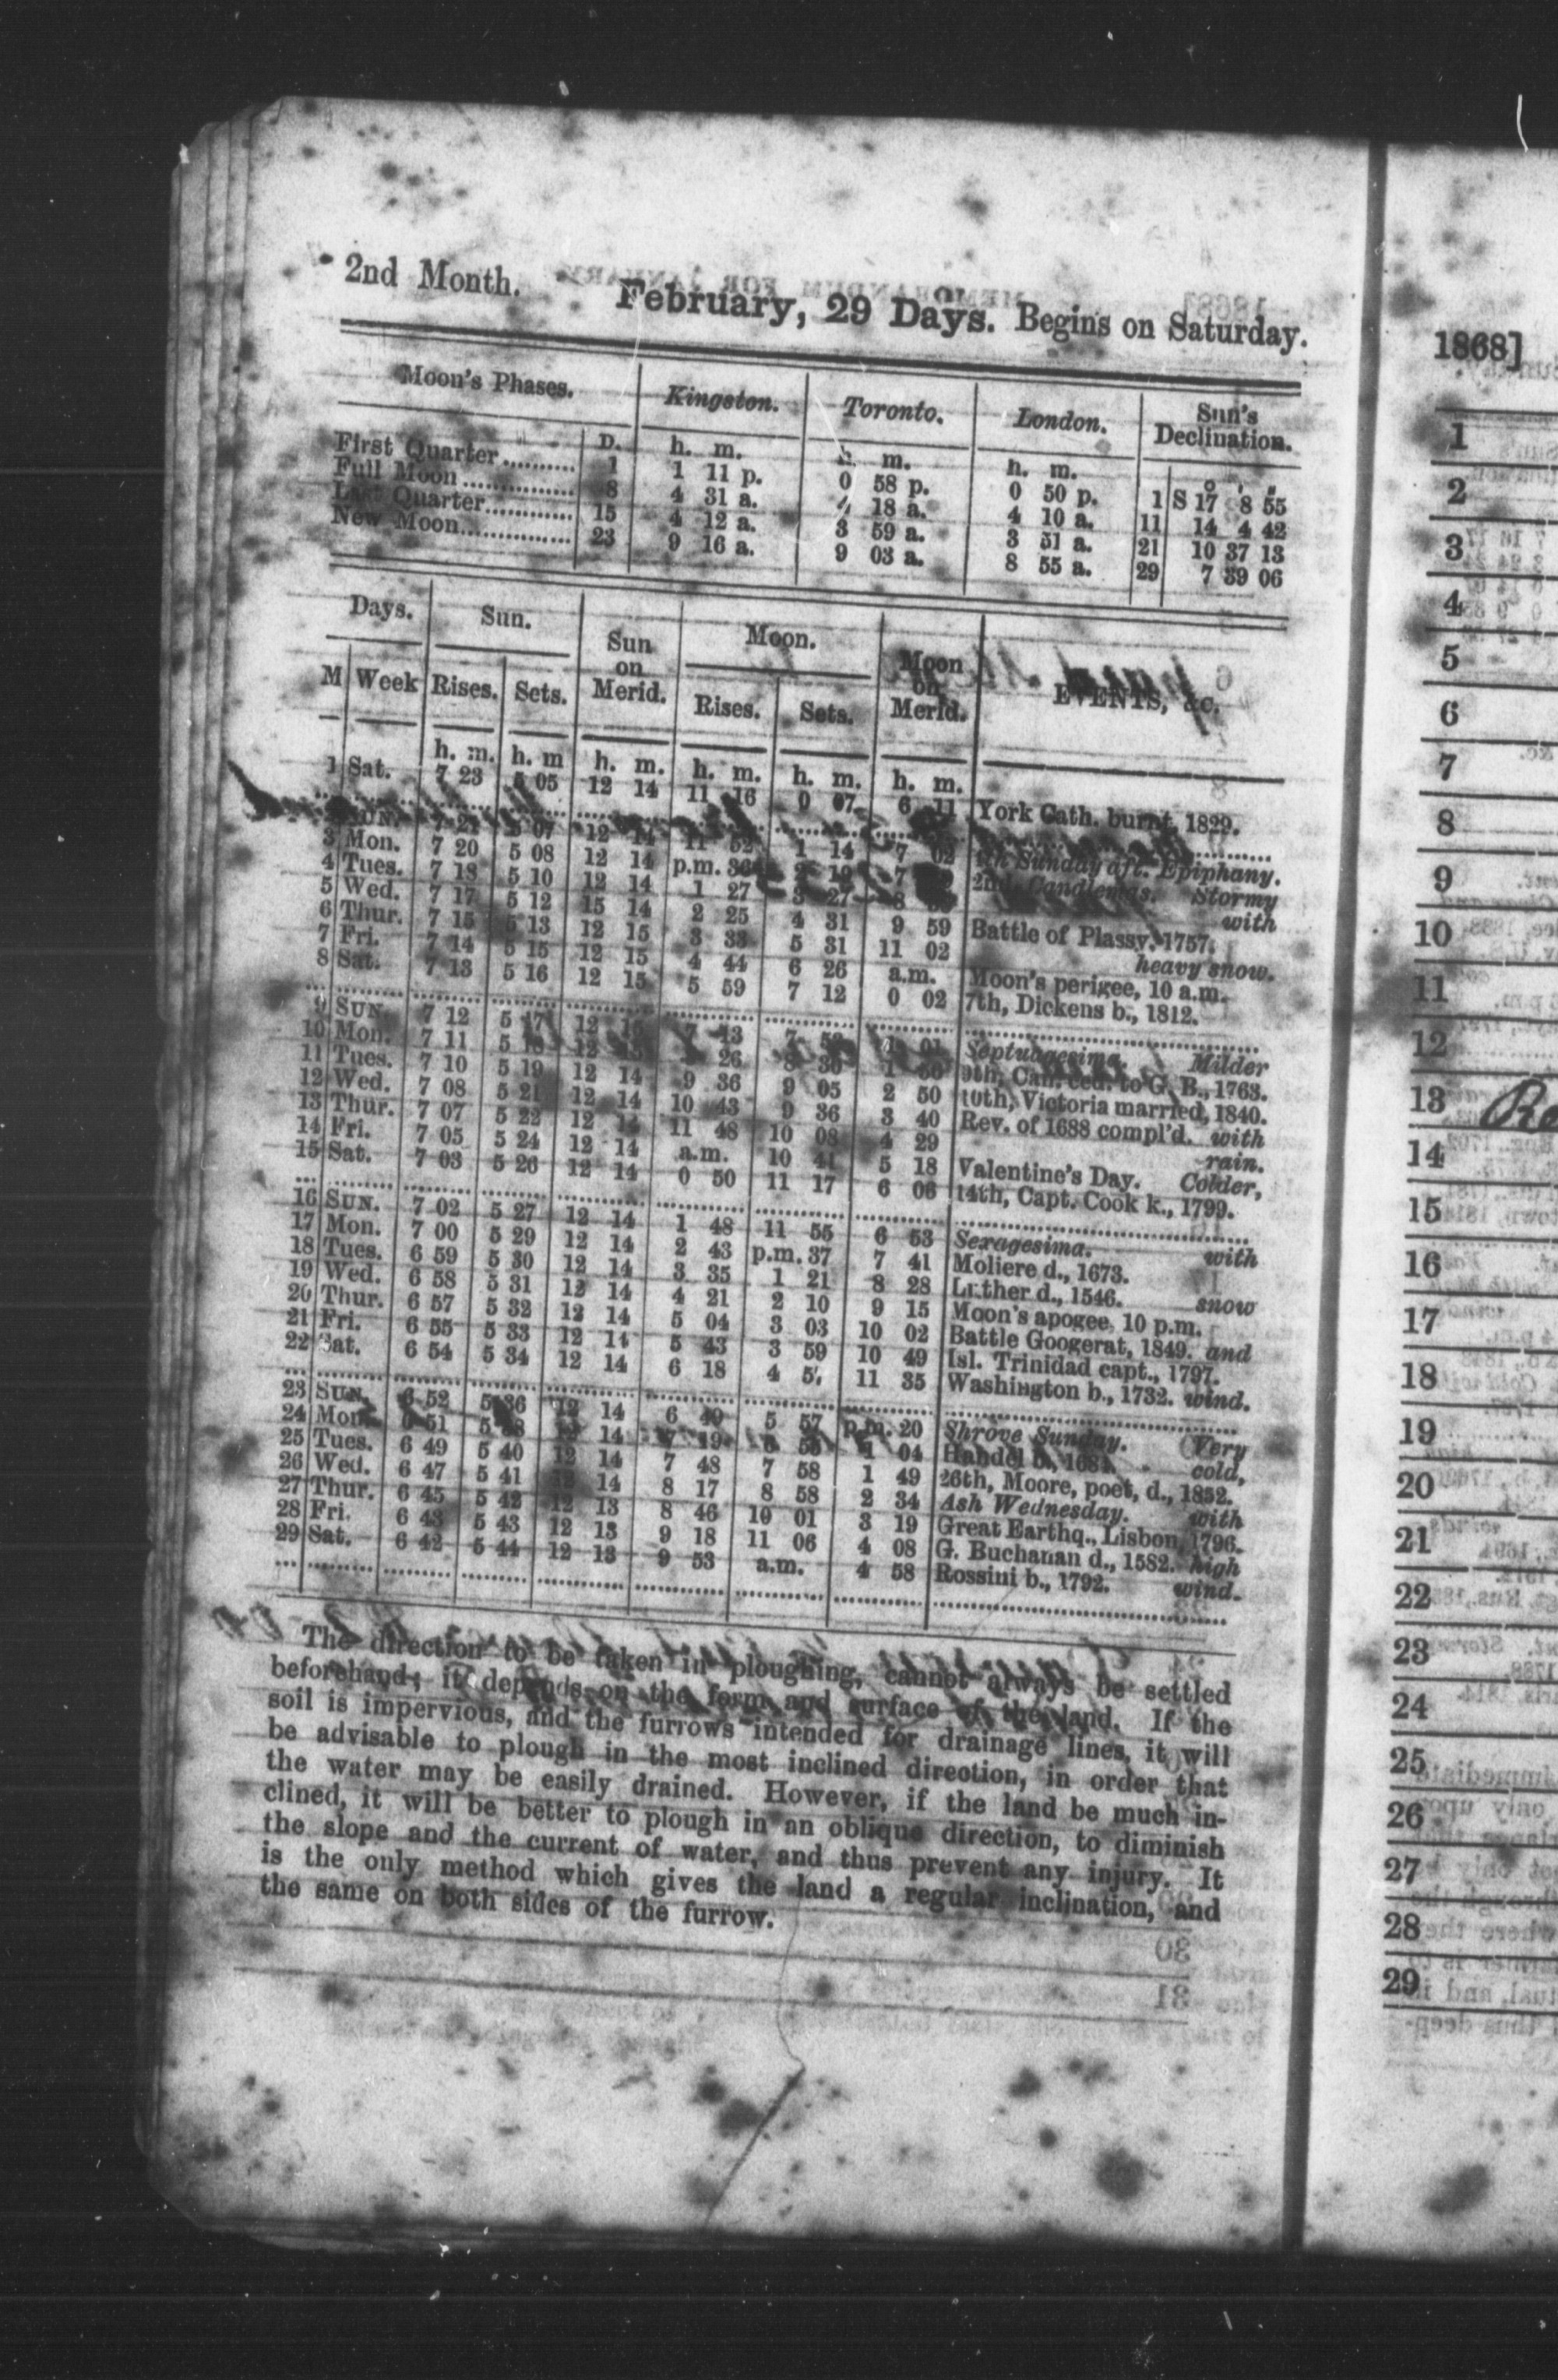 2nd Month. February, 29 Days. Begins on Saturday.
Moon's Phases. Kingston. Toronto. London. Sun's Declination.
D. h. m. h. m. h. m. ° ' "
First Quarter.......... 1 1 11 p. 0 58 p. 0 50 p. 1 S 17 8 55
Full Moon ............... 8 4 31 a. 4 18 a. 4 10 a. 11 14 4 42
Last Quarter............ 15 4 12 a. 3 59 a. 3 51 a. 21 10 37 13
New Moon............... 23 9 16 a. 9 03 a. 8 55 a. 29 7 39 06
Days. Sun. Sun on Merid. Moon. Moon on Merid. EVENTS, &c.
M Week Rises. Sets. Rises. Sets.
h. m. h. m h. m. h. m. h. m. h. m.
1 Sat. 7 23 5 05 12 14 11 16 0 07 6 11 York Cath. burnt, 1829.
SUN. 5 07 12 14 11 52 1 14 7 02 Sunday aft. Epiphany.
3 Mon. 7 20 5 08 12 14 p.m. 36 7 2nd, Candlemas. Stormy
4 Tues. 7 18 5 10 12 14 1 27 3 27 8 with
5 Wed. 7 17 5 12 15 14 2 25 4 31 9 59 Battle of Plassy, 1757.
6 Thur. 7 15 5 13 12 15 3 33 5 31 11 02 heavy snow.
7 Fri. 7 14 5 15 12 15 4 44 6 26 a.m. Moon's perigee, 10 a.m.
8 Sat. 7 13 5 16 12 15 5 59 7 12 0 02 7th, Dickens b., 1812.
9 SUN. 7 12 5 17 12 7 13 7 01 Septuagesima. Milder
10 Mon. 7 11 5 18 12 26 8 30 1 9th, Can. ced. to G. B., 1763.
11 Tues. 7 10 5 19 12 14 9 36 9 05 2 50 10th, Victoria married, 1840.
12 Wed. 7 08 5 21 12 14 10 43 9 36 3 40 Rev. of 1688 compl'd. with
13 Thur. 7 07 5 22 12 14 11 48 10 08 4 29 rain.
14 Fri. 7 05 5 24 12 14 a.m. 10 41 5 18 Valentine's Day. Colder,
15 Sat. 7 03 5 26 12 14 0 50 11 17 6 06 14th, Capt. Cook k., 1799.
16 SUN. 7 02 5 27 12 14 1 48 11 55 6 53 Sexagesima. with
17 Mon. 7 00 5 29 12 14 2 43 p.m. 37 7 41 Moliere d., 1673.
18 Tues. 6 59 5 30 12 14 3 35 1 21 8 28 Luther d., 1546. snow
19 Wed. 6 58 5 31 12 14 4 21 2 10 9 15 Moon's apogee, 10 p.m.
20 Thur. 6 57 5 32 12 14 5 04 3 03 10 02 Battle Googerat, 1849. and
21 Fri. 6 55 5 33 12 14 5 43 3 59 10 49 Isl. Trinidad capt., 1797.
22 Sat. 6 54 5 34 12 14 6 18 4 11 35 Washington b., 1732. wind.
23 SUN. 6 52 5 36 12 14 6 49 5 57 p.m. 20 Shrove Sunday. Very
24 Mon. 6 51 5 38 14 7 19 6 1 04 Handel b., 1684. cold,
25 Tues. 6 49 5 40 12 14 7 48 7 58 1 49 26th, Moore, poet, d., 1852.
26 Wed. 6 47 5 41 14 8 17 8 58 2 34 Ash Wednesday. with
27 Thur. 6 45 5 42 12 13 8 46 10 01 3 19 Great Earthq., Lisbon, 1796.
28 Fri. 6 43 5 43 12 13 9 18 11 06 4 08 G. Buchanan d., 1582. high
29 Sat. 6 42 5 44 12 13 9 53 a.m. 4 58 Rossini b., 1792. wind.
The direction to be taken in ploughing, cannot always be settled
beforehand; it depends on the form and surface of the land. If the
soil is impervious, and the furrows intended for drainage lines, it will
be advisable to plough in the most inclined direction, in order that
the water may be easily drained. However, if the land be much in-
clined, it will be better to plough in an oblique direction, to diminish
the slope and the current of water, and thus prevent any injury. It
is the only method which gives the land a regular inclination, and
the same on both sides of the furrow.
1868]
1
2
3
4
5
6
7
8
9
10
11
12
13
14
15
16
17
18
19
20
21
22
23
24
25
26
27
28
29